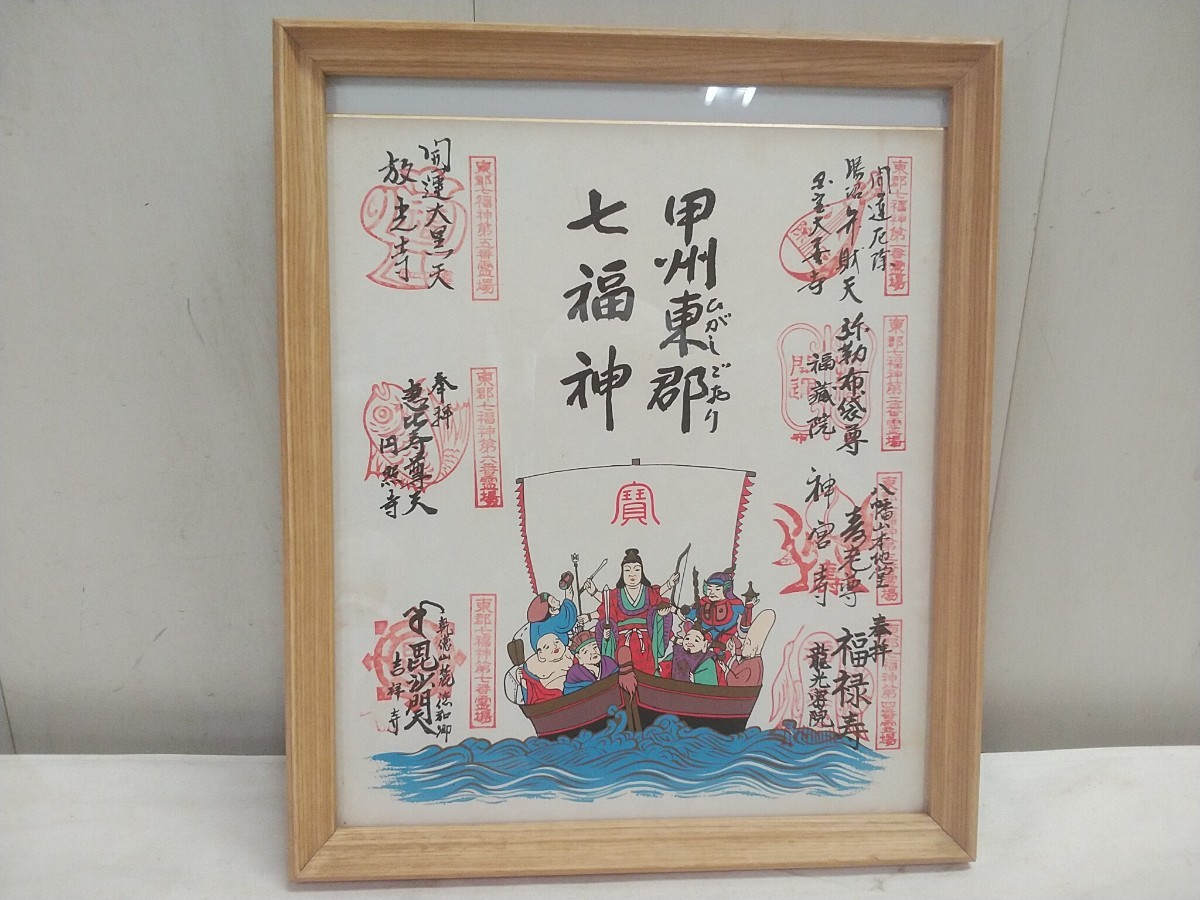 甲州東郡
ひがしごおり
七福神
東郡七福神第一番霊場
開運厄除
勝沼弁財天
大善寺
東郡七福神第二番霊場
弥勒布袋尊
福蔵院
開運
八幡山本地堂
寿老尊
神宮寺
東郡七福神第四番霊場
奉拝
福禄寿
龍光寺院
寶
東郡七福神第五番霊場
開運大黒天
放光寺
東郡七福神第六番霊場
奉拝
恵比寿尊天
円照寺
東郡七福神第七番霊場
乾徳山麓徳和郷
毘沙門天
吉祥寺